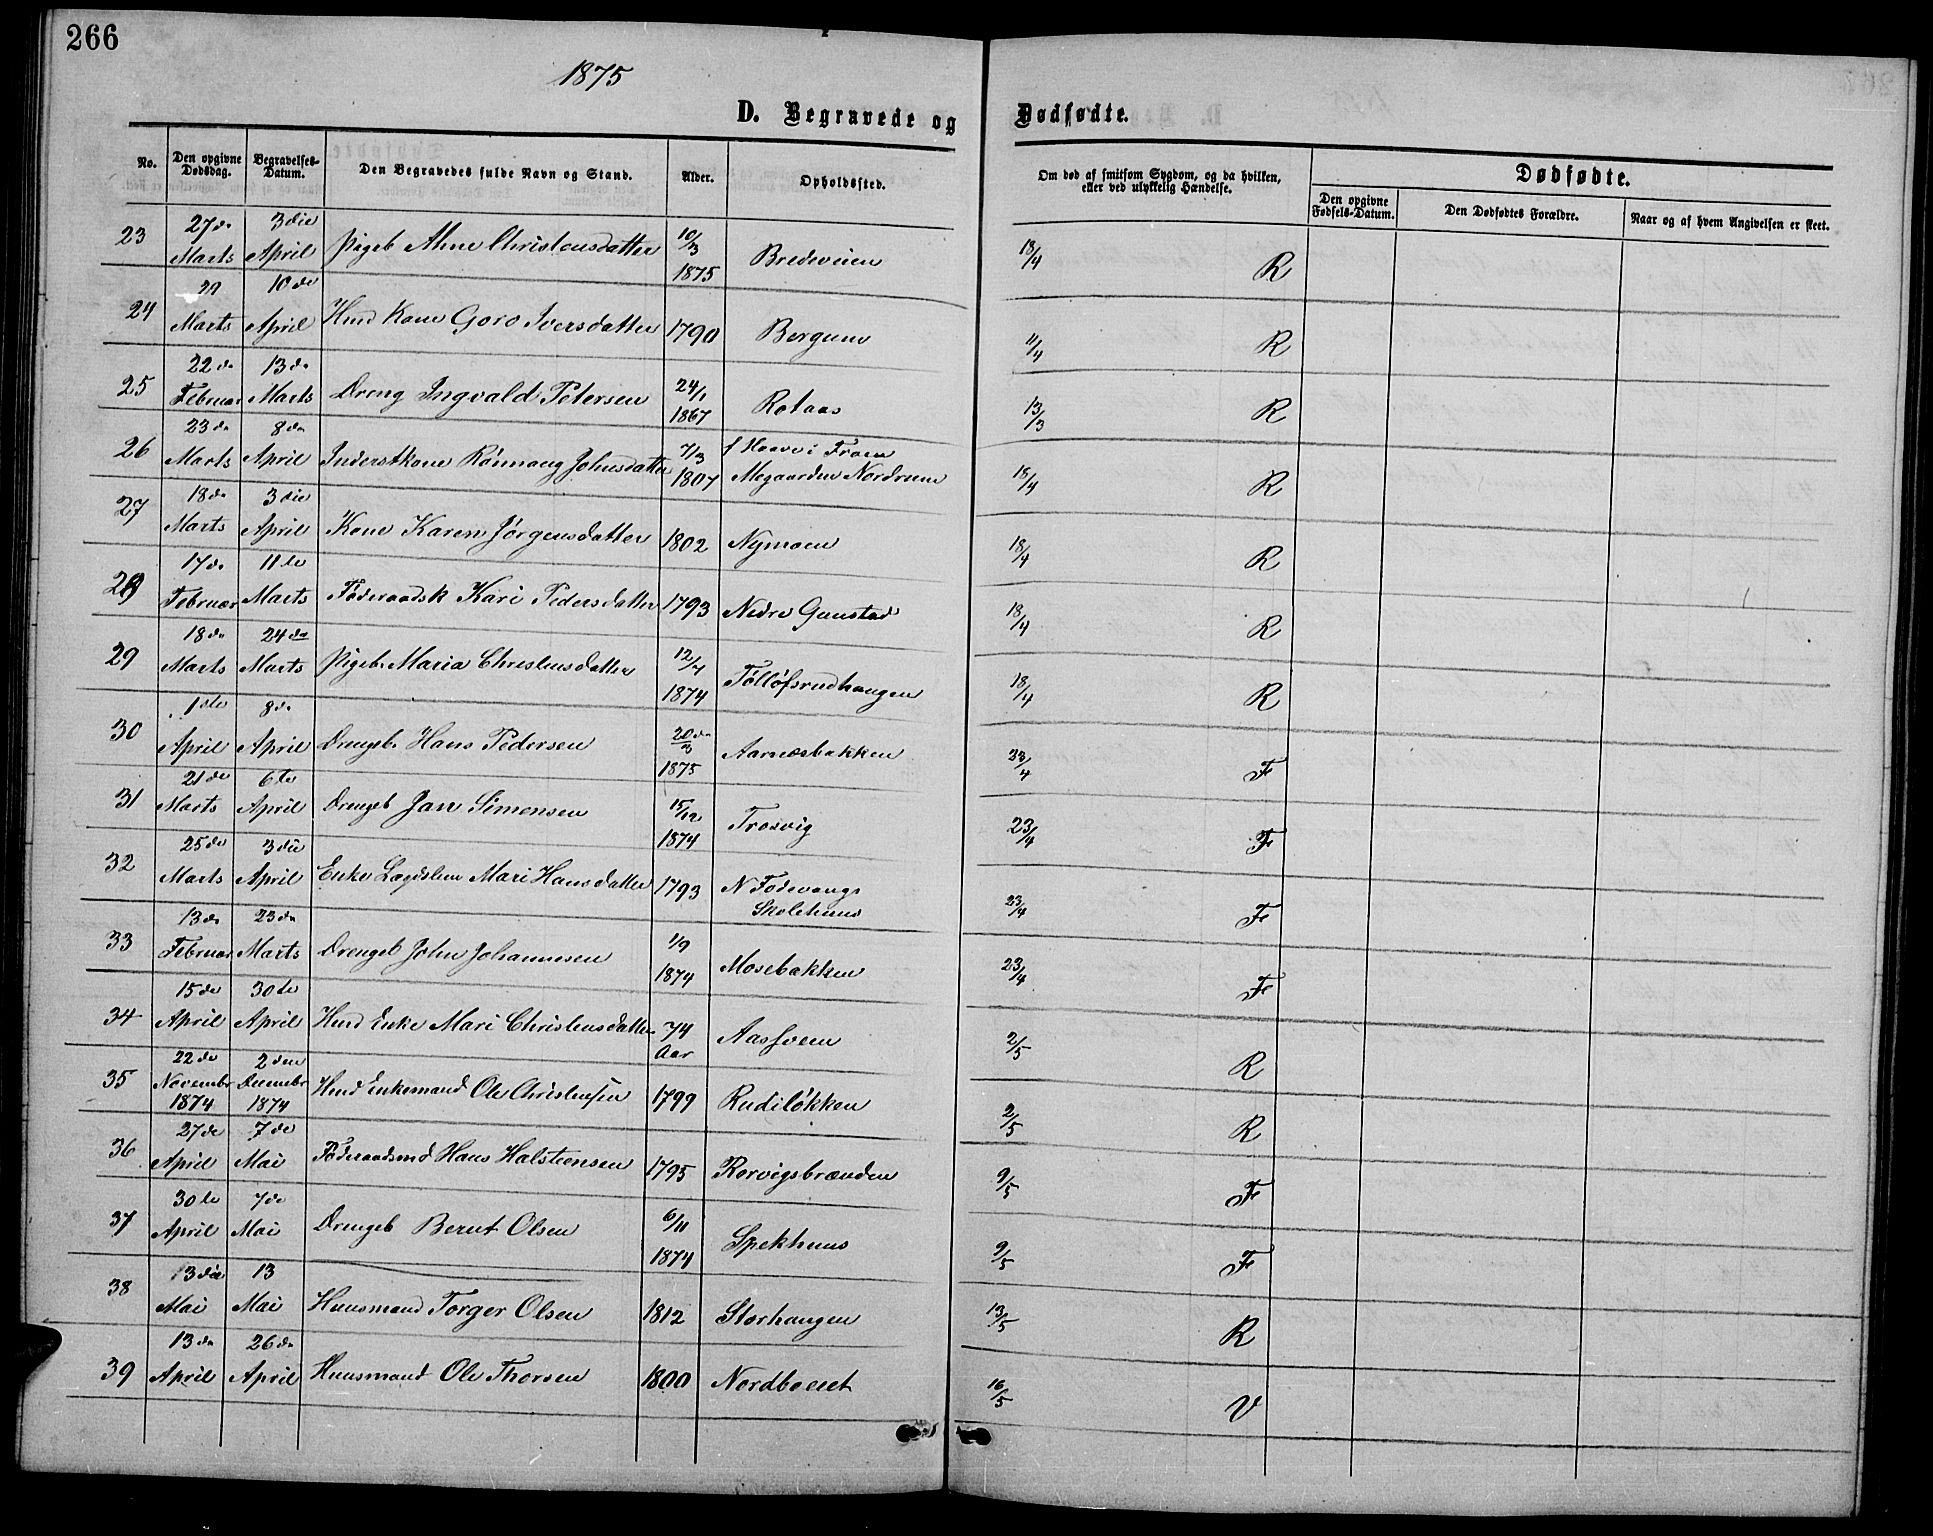 266
1875
D. Begravede og Dødfødte.
No. | Den opgivne Dødsdag. | Begravelses-Datum. | Den Begravedes fulde Navn og Stand. | Alder. | Opholdssted. | Om død af smitsom Sygdom, og da hvilken, eller ved ulykkelig Hændelse. | Dødfødte. | Den opgivne Fødsels-Datum. | Den Dødfødtes Forældre. | Naar og af hvem Angivelsen er skeet.
23 | 27de Marts | 3die April | Pigeb Christensdatter | 10/3 1875 | Bredeveien | 18/4 R
24 | 29 Marts | 10de April | Huusd Kone Goro Iversdatter | 1790 | Bergum | 11/4 R
25 | 22de Februar | 13de Marts | Dreng Ingvald Petersen | 24/1 1867 | Rotaas | 13/3 R
26 | 23de Marts | 8de April | Inderstkone Rönnaug Johnsdatter | 7/3 1807 | f Haave i Froen Megaarden Nordrum | 18/4 R
27 | 18de Marts | 3die April | Kone Karen Jörgensdatter | 1802 | Nymoen | 18/4 R
28 | 17de Februar | 11te Marts | Föderaadsk Kari Pedersdatter | 1793 | Nedre Gunstad | 18/4 R
29 | 18de Marts | 24de Marts | Pigeb. Maria Christensdatter | 12/4 1874 | Tölløfsrudhaugen | 18/4 R
30 | 1ste April | 8de April | Drengeb. Hans Pedersen | 20de/3 1875 | Aarnæsbakken | 23/4 F
31 | 21de Marts | 6te April | Drengeb Jan Simensen | 15/12 1874 | Trosvig | 23/4 F
32 | 25de Marts | 3die April | Enke Lægdslem Mari Hansdatter | 1793 | N Fodevangs Skolehuus | 23/4 F
33 | 13de Februar | 23de Marts | Drengeb John Johannesen | 1/9 1874 | Mosebakken | 23/4 F
34 | 15de April | 30te April | Huusd Enke Mari Christensdatter | 74 Aar | Aassveen | 2/5 R
35 | 22de Novembr 1874 | 2den Decembr 1874 | Huusd Enkemand Ole Christensen | 1799 | Rudilökken | 2/5 R
36 | 27de April | 7de Mai | Föderaadsmd Hans Halstensen | 1795 | Rorvigsbrænden | 9/5 F
37 | 30te April | 7de Mai | Drengeb Bernt Olsen | 6/11 1874 | Spekhuus | 9/5 F
38 | 13die Mai | 13 Mai | Huusmand Torger Olsen | 1812 | Storhaugen | 13/5 R
39 | 13de April | 26de April | Huusmand Ole Thorsen | 1800 | Nordboeset | 16/5 V